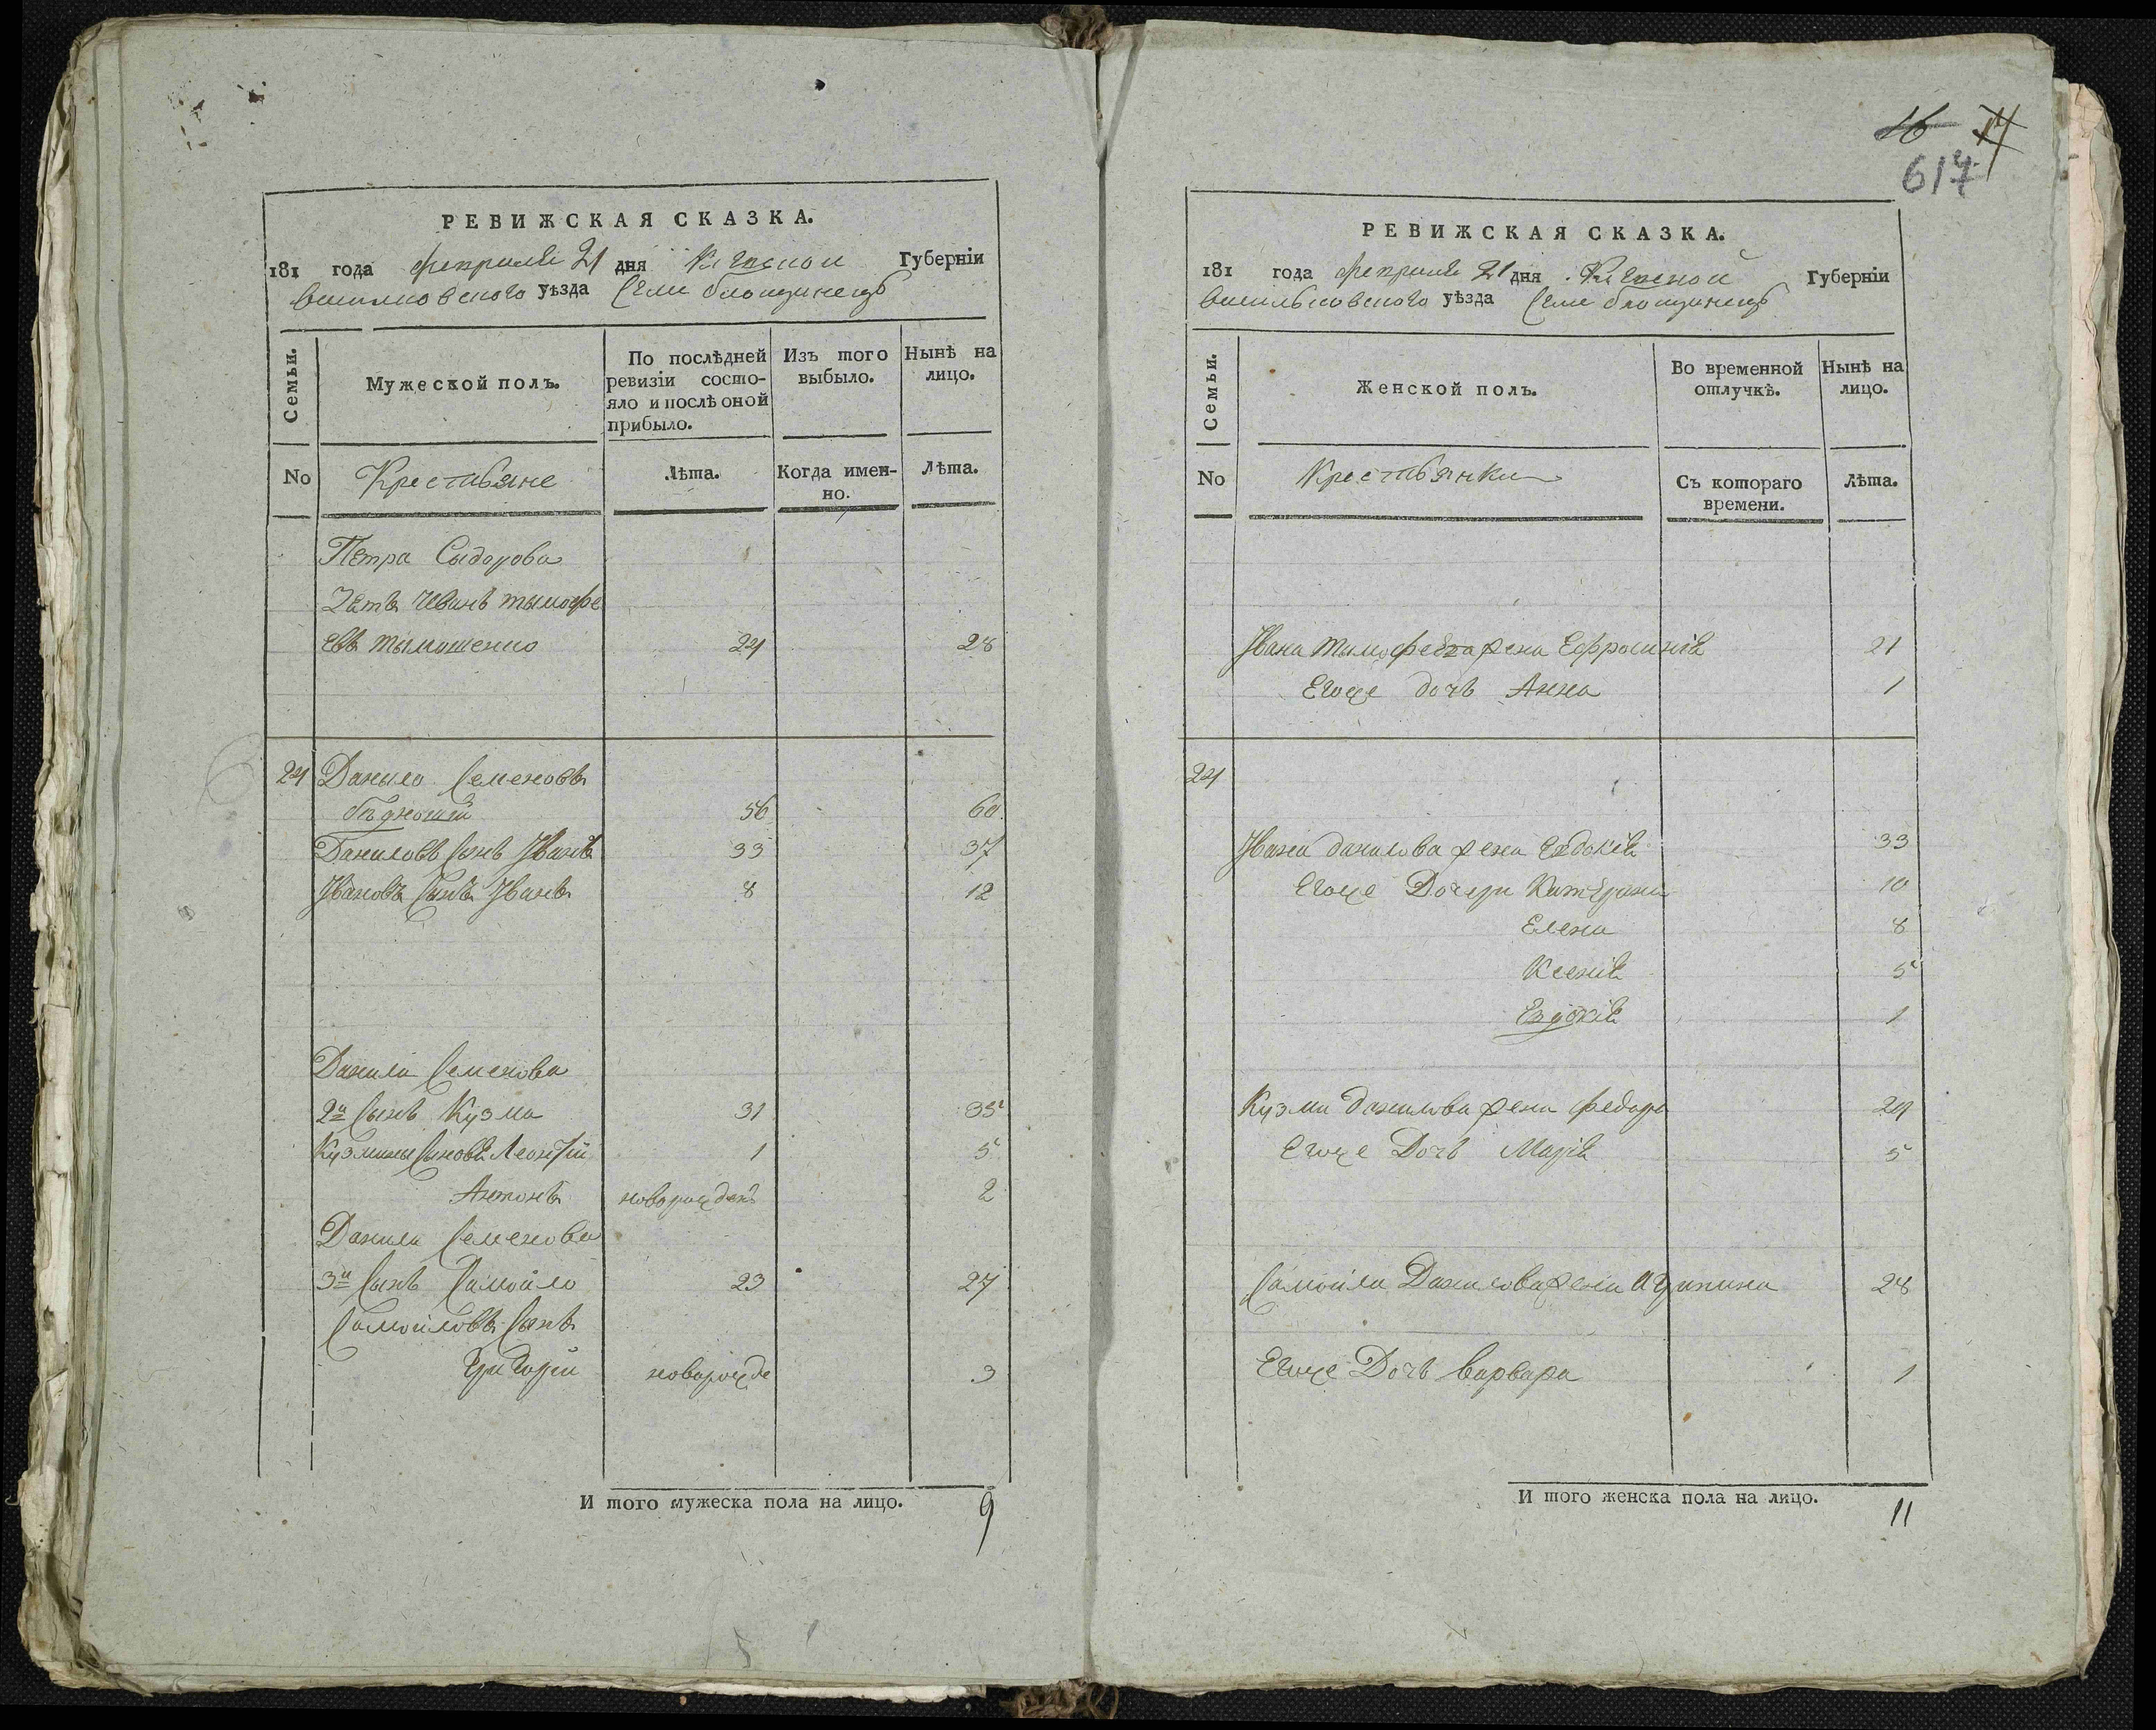 РЕВИЖСКАЯ СКАЗКА.
181 года февраля 21 дня Киевской Губерніи
васильковского уѣзда Села блощинецъ
Семьи.
Мужеской полъ.
По послѣдней ревизіи состояло и послѣ оной прибыло.
Изъ того выбыло.
Нынѣ на лицо.
No Крестьяне Лѣта. Когда именно. Лѣта.
Петра Сыдорова
Зять Иванъ тымофе
евъ тымошенко 24 28
24 Даныло Семеновъ
56 60
Даниловъ Сынъ Іванъ 33 37
Івановъ Сынъ Іванъ 8 12
Данила Семенова
2й Сынъ Кузма 31 35
Кузмины Сыновья Леонтій 1 5
Антонъ новорожденъ 2
Данила Семенова
3й Сынъ Самойло 23 27
Самойловъ Сынъ
Григорій новорожде 3
И того мужеска пола на лицо. 9
16 17
617
РЕВИЖСКАЯ СКАЗКА.
181 года февраля 21 дня Киевской Губерніи
васильковского уѣзда Села блощинецъ
Семьи.
Женской полъ.
Во временной отлучкѣ.
Нынѣ на лицо.
No Крестьянки Съ котораго времени. Лѣта.
Івана тымофеева жена Ефросинія 21
Егоже дочь Анна 1
24
Івана данилова жена Евдокія 33
Егоже Дочери Катерина 10
Елена 8
Ксенія 5
Евдокія 1
Кузмы данилова жена федора 29
Егоже Дочь Марія 5
Самойла Данилова жена Агрипина 28
Егоже Дочь варвара 1
И того женска пола на лицо. 11